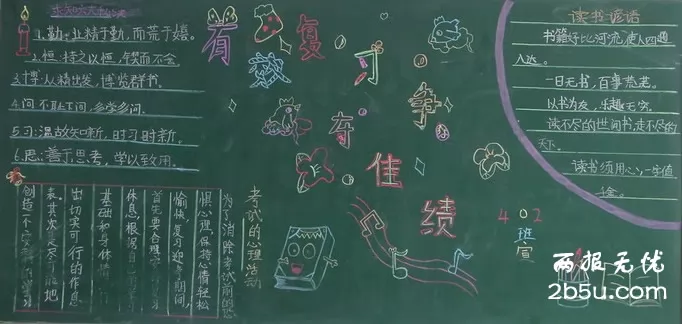 1.勤:业精于勤,而荒于嬉。
2.恒:持之以恒,锲而不舍。
3.博:从精出发,博览群书。
4.问:不耻下问,多学多问。
5.习:温故知新,时习时新。
6.思:善于思考,学以致用。
有效复习
争夺佳绩
读书谚语
书籍好比河流,使人四通
八达。
一日无书,百事荒芜。
以书为友,乐趣无穷。
读不尽的世间书,走不尽的
天下。
读书须用心,一字值
千金。
考试的心理活动
为了消除考试前的恐
惧心理,保持心情轻松
愉快,复习迎考期间,
首先要合理
休息,根据自己的学习
基础和身体情
出切实可行的作息
表。其次是尽可能地
创造一个安静的学习
402班宣
两报无优
2b5u.com